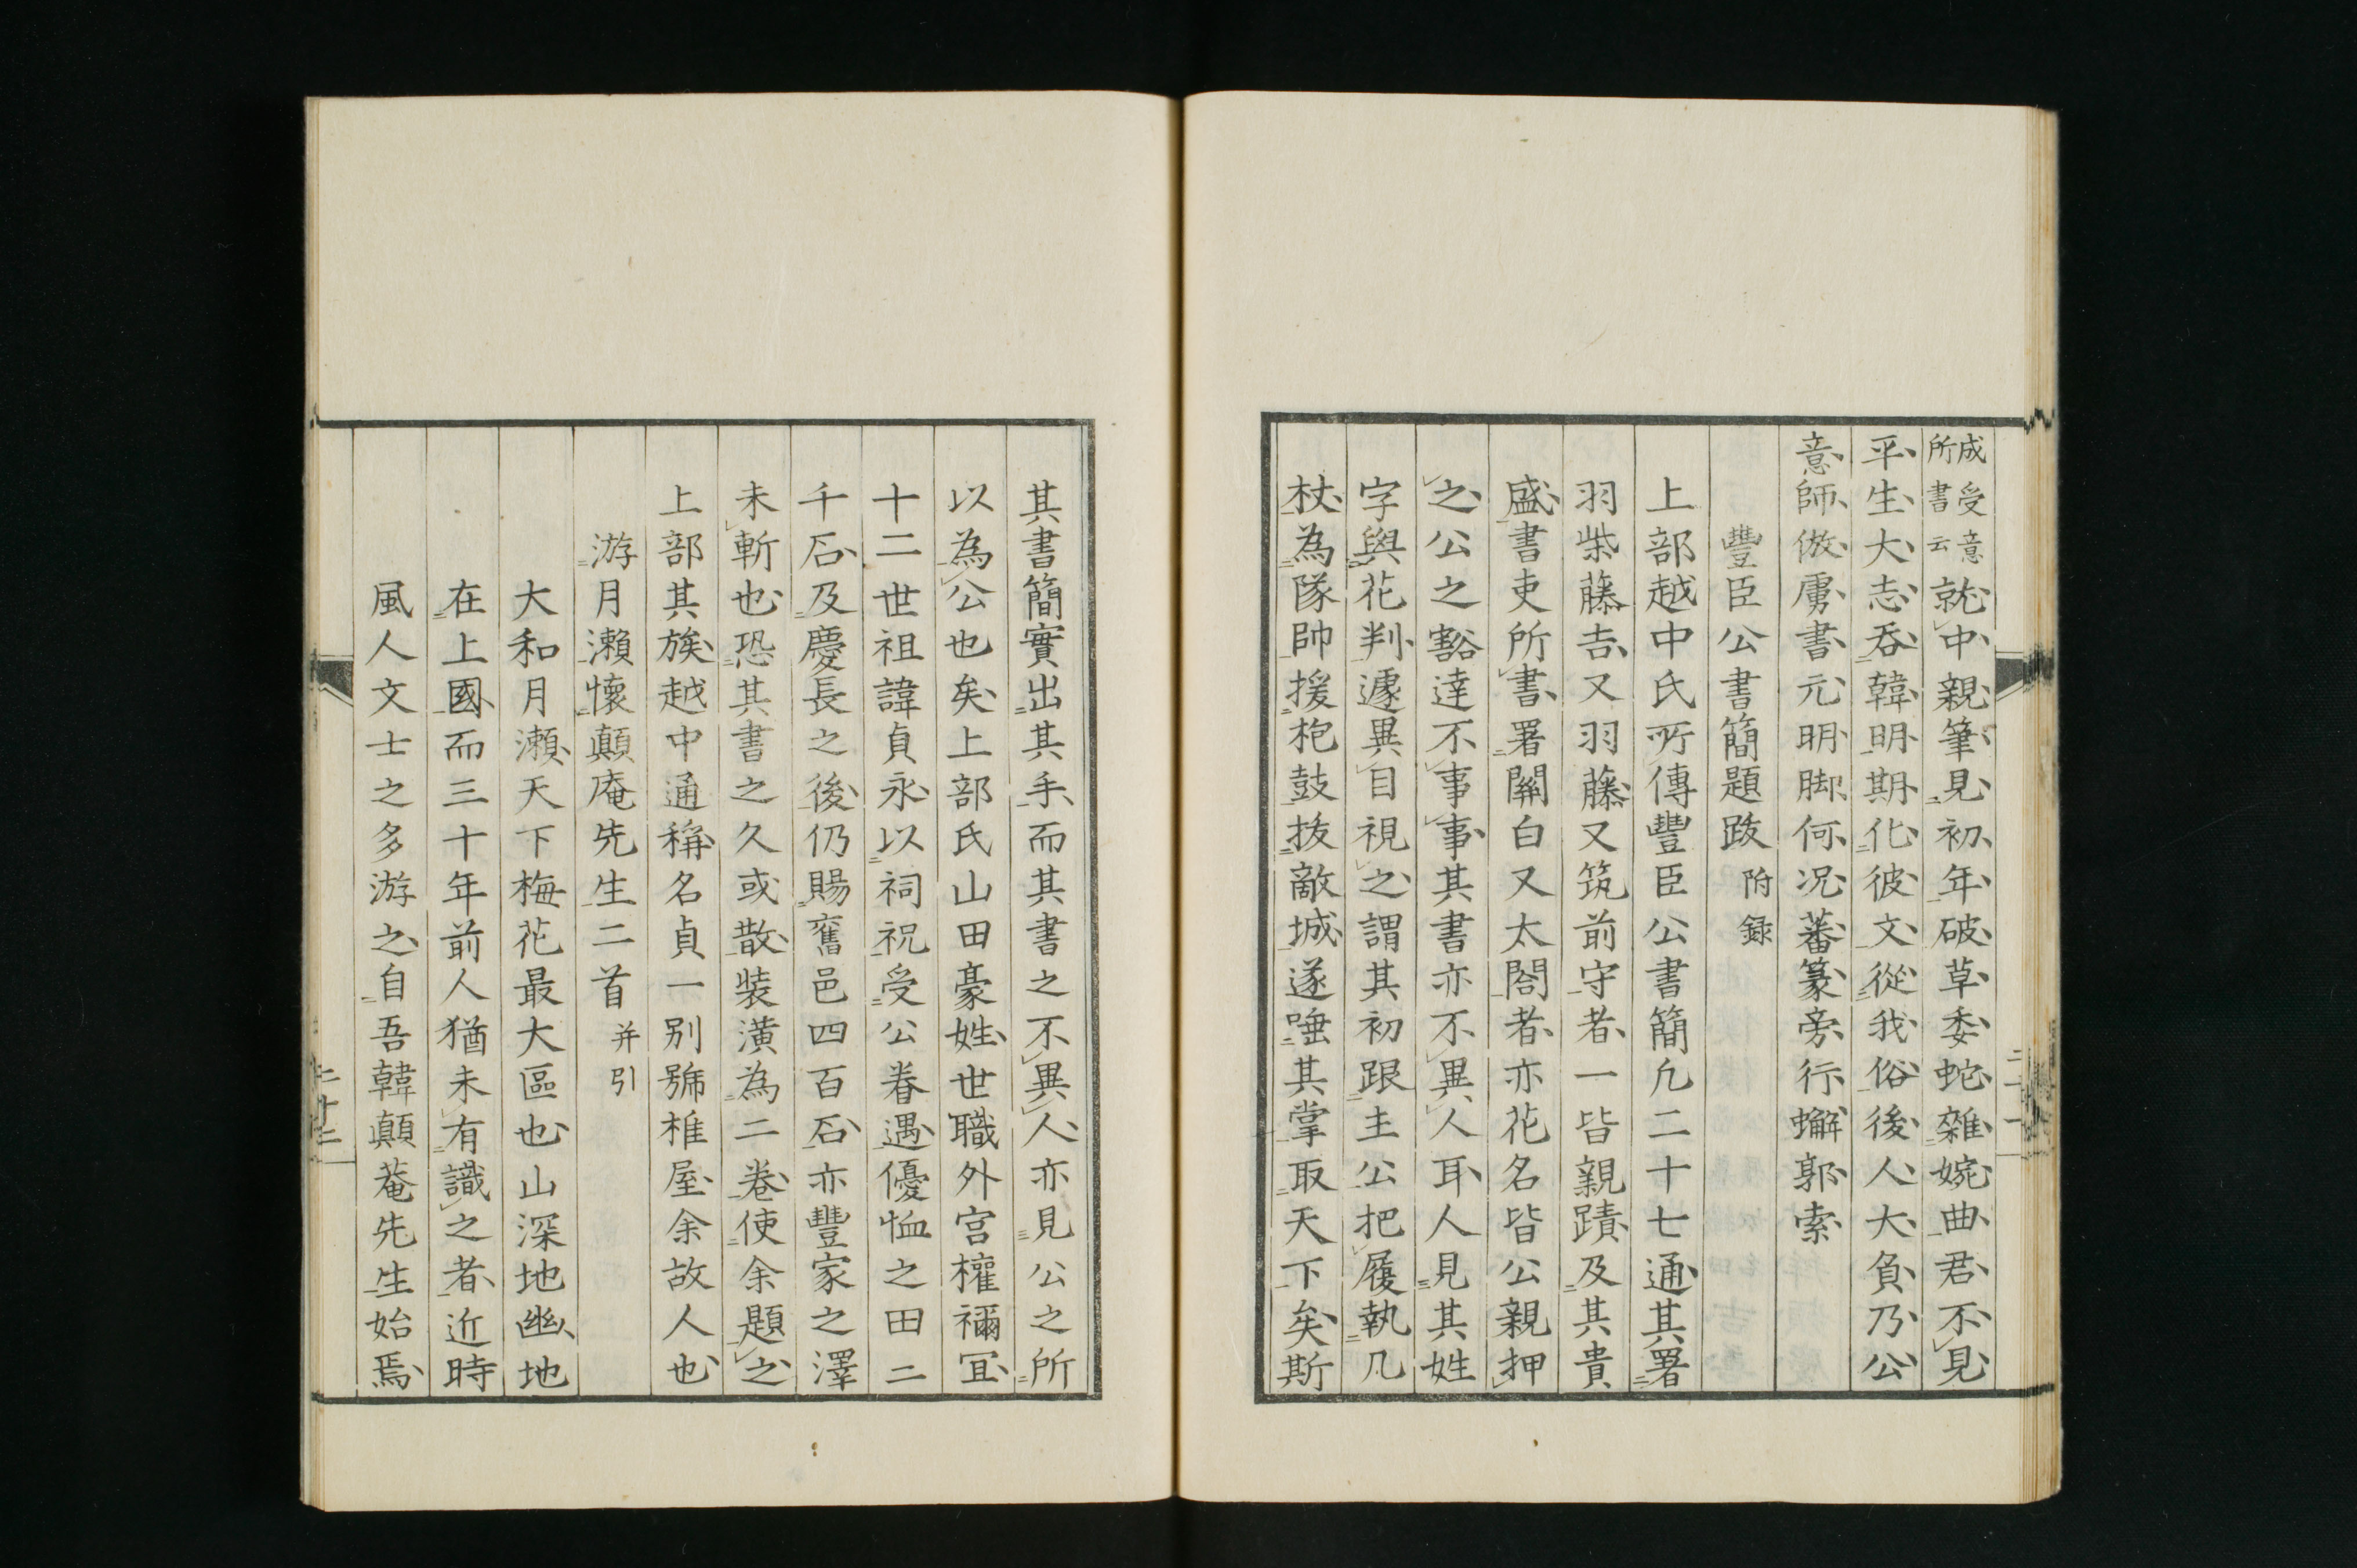 成受意所書云就中親筆見初年破草委蛇雜婉曲君不見
平生大志吞韓明期化彼文從我俗後人大負乃公
意師倣虜書元明脚何况蕃篆旁行蠏郭索
豐臣公書簡題跋附録
上部越中氏所傳豐臣公書簡凢二十七通其署
羽柴藤吉又羽藤又筑前守者一皆親蹟及其貴
盛書吏所書署關白又太閤者亦花名皆公親押
之公之豁達不事事其書亦不異人耳人見其姓
字與花判遽異目視之謂其初跟主公把履執几
杖為隊帥援枹鼓拔敵城遂唾其掌取天下矣斯
其書簡實出其手而其書之不異人亦見公之所
以為公也矣上部氏山田豪姓世職外宮權禰冝
十二世祖諱貞永以祠祝受公眷遇優恤之田二
千石及慶長之後仍賜舊邑四百石亦豐家之澤
未斬也恐其書之久或散裝潢為二卷使余題之
上部其族越中通稱名貞一別號椎屋余故人也
游月瀨懷顛庵先生二首并引
大和月瀨天下梅花最大區也山深地幽地
在上國而三十年前人猶未有識之者近時
風人文士之多游之自吾韓顛菴先生始焉
二十一
二十二